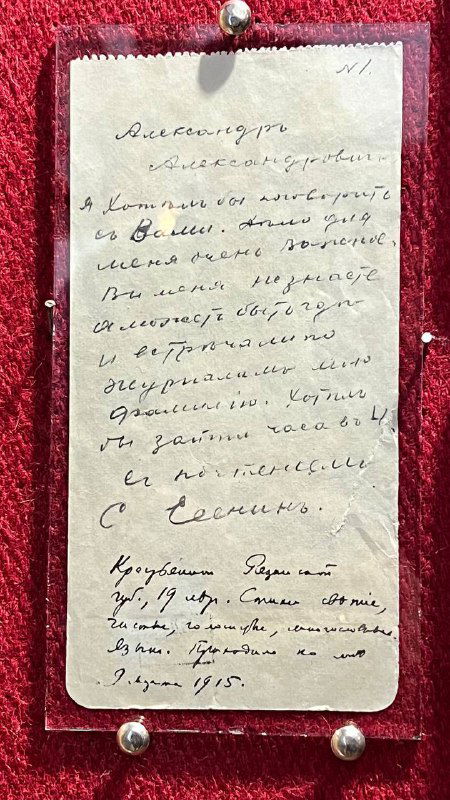 №1.
Александръ
Александровичъ
Я хотѣлъ бы поговорить
съ Вами. Дѣло для
меня очень важное.
Вы меня не знаете
а можетъ быть гдѣ
и встрѣчали по
журналамъ мою
фамилію. Хотѣлъ
бы зайти часа въ 4.
Съ почтеніемъ
С Есенинъ.
Крестьянин Рязанской
губ., 19 лет. Стихи свежие,
чистые, голосистые, многословные.
Язык. Приходил ко мне
9 марта 1915.